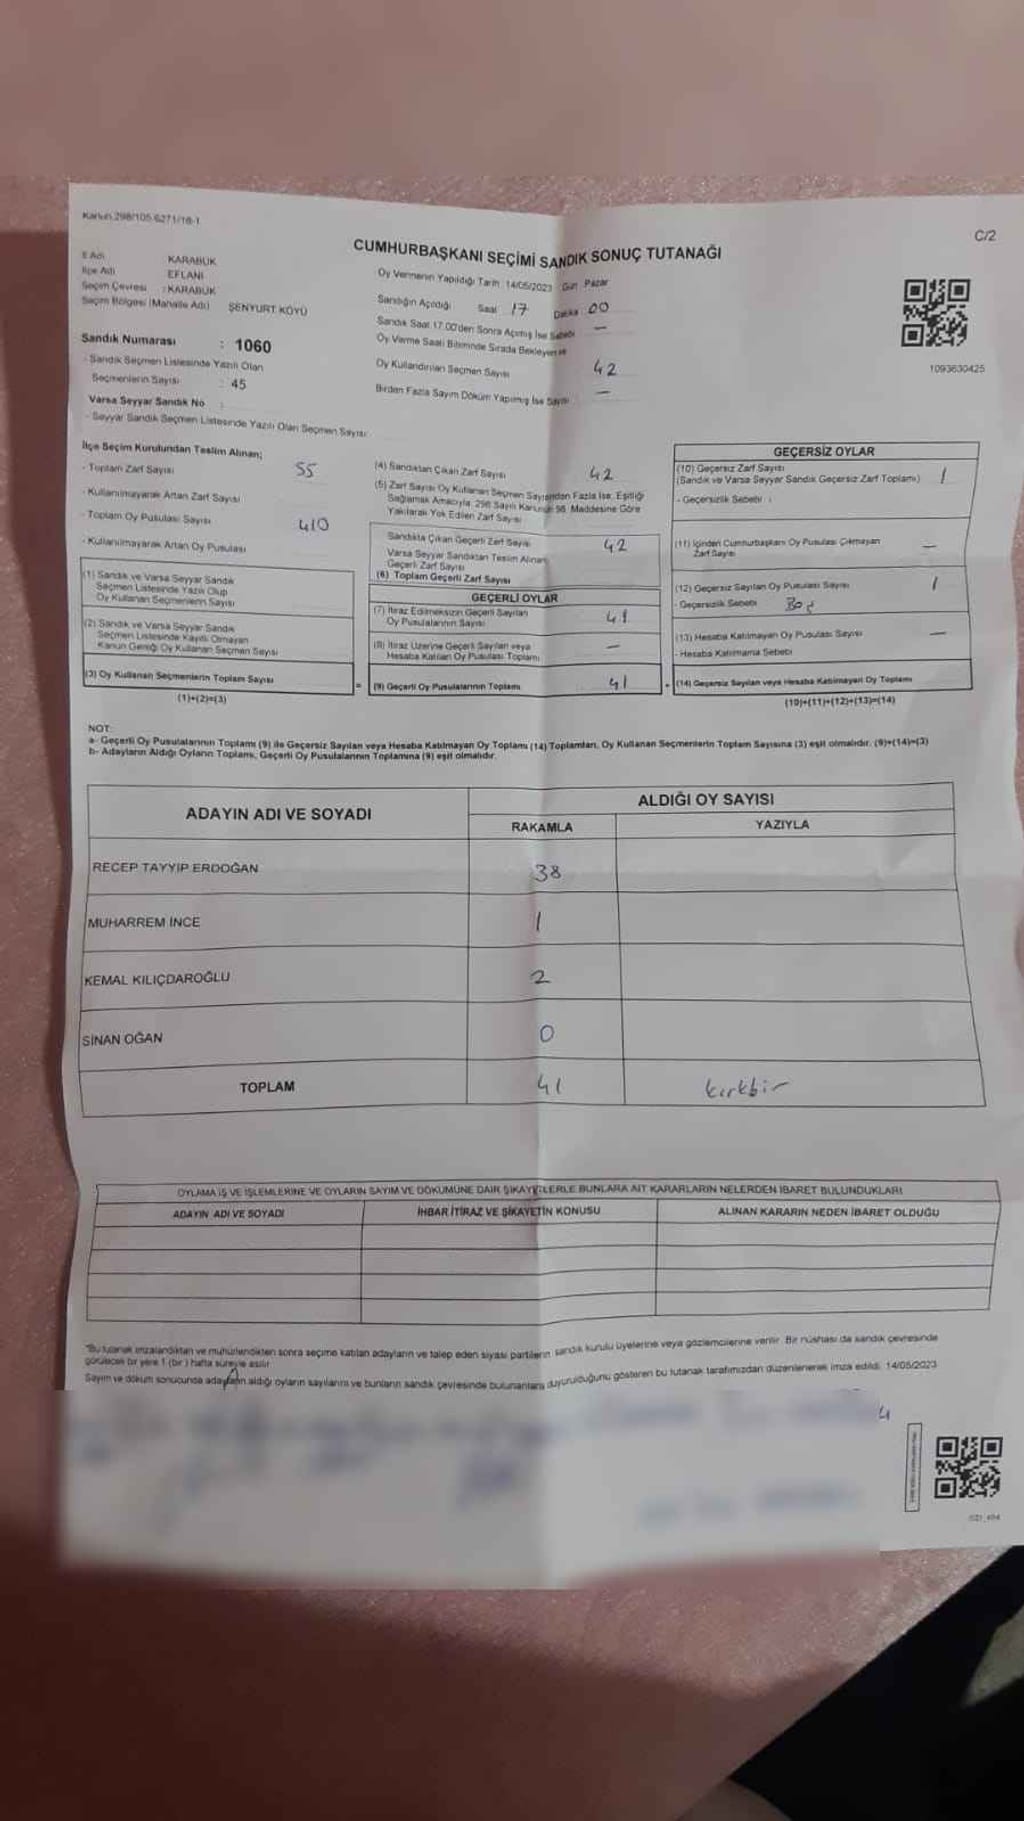 Kanun 298/105 6271/18-1
C/2
CUMHURBAŞKANI SEÇİMİ SANDIK SONUÇ TUTANAĞI
İl Adı KARABÜK
İlçe Adı EFLANİ
Seçim Çevresi : KARABÜK
Seçim Bölgesi (Mahalle Adı) ŞENYURT KÖYÜ
Sandık Numarası : 1060
- Sandık Seçmen Listesinde Yazılı Olan
Seçmenlerin Sayısı : 45
Varsa Seyyar Sandık No :
- Seyyar Sandık Seçmen Listesinde Yazılı Olan Seçmen Sayısı
Oy Vermenin Yapıldığı Tarih : 14/05/2023 Gün : Pazar
Sandığın Açıldığı Saat 17 Dakika 00
Sandık Saat 17.00'den Sonra Açılmış İse Sebebi —
Oy Verme Saati Bitiminde Sırada Bekleyen ve
Oy Kullandırılan Seçmen Sayısı 42
Birden Fazla Sayım Döküm Yapılmış İse Sayısı —
1093630425
İlçe Seçim Kurulundan Teslim Alınan;
- Toplam Zarf Sayısı 55
- Kullanılmayarak Artan Zarf Sayısı
- Toplam Oy Pusulası Sayısı 410
- Kullanılmayarak Artan Oy Pusulası
(1) Sandık ve Varsa Seyyar Sandık
Seçmen Listesinde Yazılı Olup
Oy Kullanan Seçmenlerin Sayısı
(2) Sandık ve Varsa Seyyar Sandık
Seçmen Listesinde Kayıtlı Olmayan
Kanun Gereği Oy Kullanan Seçmen Sayısı
(3) Oy Kullanan Seçmenlerin Toplam Sayısı
(1)+(2)=(3)
=
(4) Sandıktan Çıkan Zarf Sayısı 42
(5) Zarf Sayısı Oy Kullanan Seçmen Sayısından Fazla İse, Eşitliği
Sağlamak Amacıyla, 298 Sayılı Kanunun 98. Maddesine Göre
Yakılarak Yok Edilen Zarf Sayısı
Sandıkta Çıkan Geçerli Zarf Sayısı 42
Varsa Seyyar Sandıktan Teslim Alınan
Geçerli Zarf Sayısı
(6) Toplam Geçerli Zarf Sayısı
GEÇERLİ OYLAR
(7) İtiraz Edilmeksizin Geçerli Sayılan
Oy Pusulalarının Sayısı 41
(8) İtiraz Üzerine Geçerli Sayılan veya
Hesaba Katılan Oy Pusulası Toplamı —
(9) Geçerli Oy Pusulalarının Toplamı 41
+
GEÇERSİZ OYLAR
(10) Geçersiz Zarf Sayısı 1
(Sandık ve Varsa Seyyar Sandık Geçersiz Zarf Toplamı)
- Geçersizlik Sebebi :
(11) İçinden Cumhurbaşkanı Oy Pusulası Çıkmayan —
Zarf Sayısı
(12) Geçersiz Sayılan Oy Pusulası Sayısı 1
- Geçersizlik Sebebi Boş
(13) Hesaba Katılmayan Oy Pusulası Sayısı —
- Hesaba Katılmama Sebebi
(14) Geçersiz Sayılan veya Hesaba Katılmayan Oy Toplamı
(10)+(11)+(12)+(13)=(14)
NOT:
a- Geçerli Oy Pusulalarının Toplamı (9) ile Geçersiz Sayılan veya Hesaba Katılmayan Oy Toplamı (14) Toplamları, Oy Kullanan Seçmenlerin Toplam Sayısına (3) eşit olmalıdır. (9)+(14)=(3)
b- Adayların Aldığı Oyların Toplamı, Geçerli Oy Pusulalarının Toplamına (9) eşit olmalıdır.
ADAYIN ADI VE SOYADI
ALDIĞI OY SAYISI
RAKAMLA YAZIYLA
RECEP TAYYİP ERDOĞAN 38
MUHARREM İNCE 1
KEMAL KILIÇDAROĞLU 2
SİNAN OĞAN 0
TOPLAM 41 kırkbir
OYLAMA İŞ VE İŞLEMLERİNE VE OYLARIN SAYIM VE DÖKÜMÜNE DAİR ŞİKAYETLERLE BUNLARA AİT KARARLARIN NELERDEN İBARET BULUNDUKLARI
ADAYIN ADI VE SOYADI İHBAR İTİRAZ VE ŞİKAYETİN KONUSU ALINAN KARARIN NEDEN İBARET OLDUĞU
"Bu tutanak imzalandıktan ve mühürlendikten sonra seçime katılan adayların ve talep eden siyasi partilerin sandık kurulu üyelerine veya gözlemcilerine verilir. Bir nüshası da sandık çevresinde
görülecek bir yere 1 (bir) hafta süreyle asılır.
Sayım ve döküm sonucunda adayların aldığı oyların sayılarını ve bunların sandık çevresinde bulunanlara duyurulduğunu gösteren bu tutanak tarafımızdan düzenlenerek imza edildi. 14/05/2023